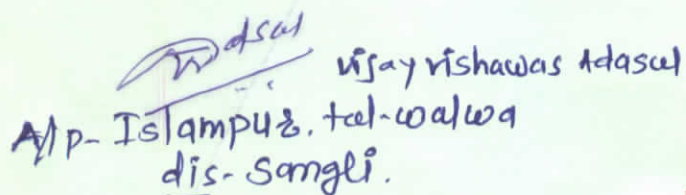 vijay vishawas Adasul
A/p- Islampur. tal-walwa
dis- Sangli.